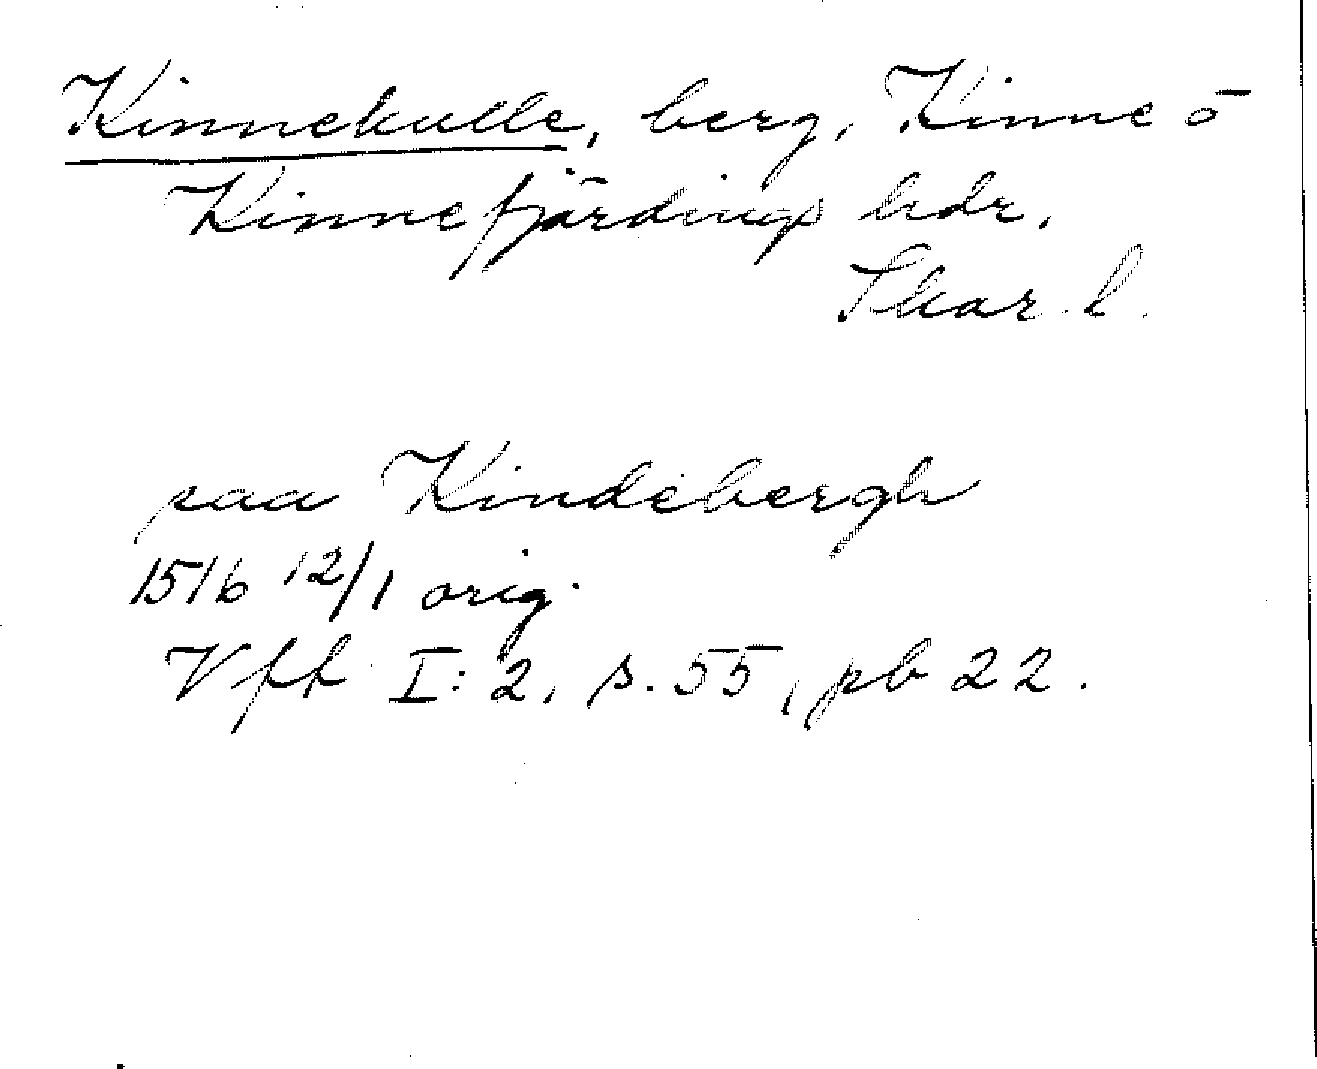 Kinnekulle, berg, Kinne o
Kinnefjärdings hdr,
Skar. l.
paa Kindebergh
1516 12/1 orig.
Vff I:2, s. 55, pb 22.